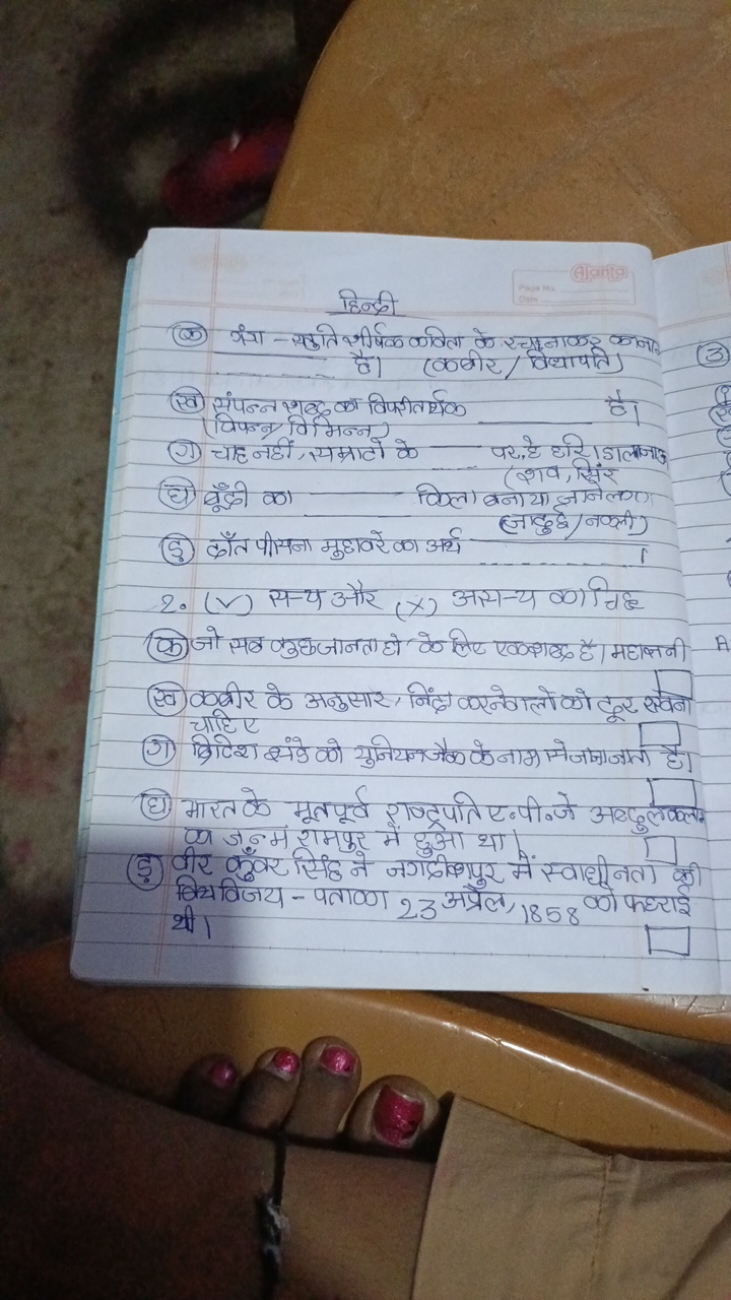 Ajanta
Page No.
Date
हिन्दी
(क) गंगा - स्तुति शीर्षक कविता के रचानाकर का नाम
________ है। (कबीर / विद्यापति)
(ख) संपन्न शब्द का विपरीतार्थक ________ है।
(विपन्न / विभिन्न)
(ग) चाह नहीं, सम्राटों के ____ पर, हे हरि। डाला जाऊ
(शव, सिर
(घ) बूँदी का ________ किला बनाया जाने लगा
(जादुई / नकली)
(ङ) दाँत पीसना मुहावरे का अर्थ ________ ।
2. (✓) सत्य और (X) असत्य का चिह्न
(क) जो सब कुछ जानता हो के लिए एक शब्द है। महाज्ञनी
(ख) कबीर के अनुसार, निंदा करनेवालों को दूर रखना
चाहिए
(ग) ब्रिटिश झंडे को युनियन जैक के नाम से जाना जाता है।
(घ) भारत के भूतपूर्व राष्ट्रपति ए.पी.जे अब्दुल कलाम
का जन्म रामपुर में हुआ था।
(ङ) वीर कुँवर सिंह ने जगदीशपुर में स्वाधीनता की
विजय - पताका 23 अप्रैल, 1858 को फहराई
थी।